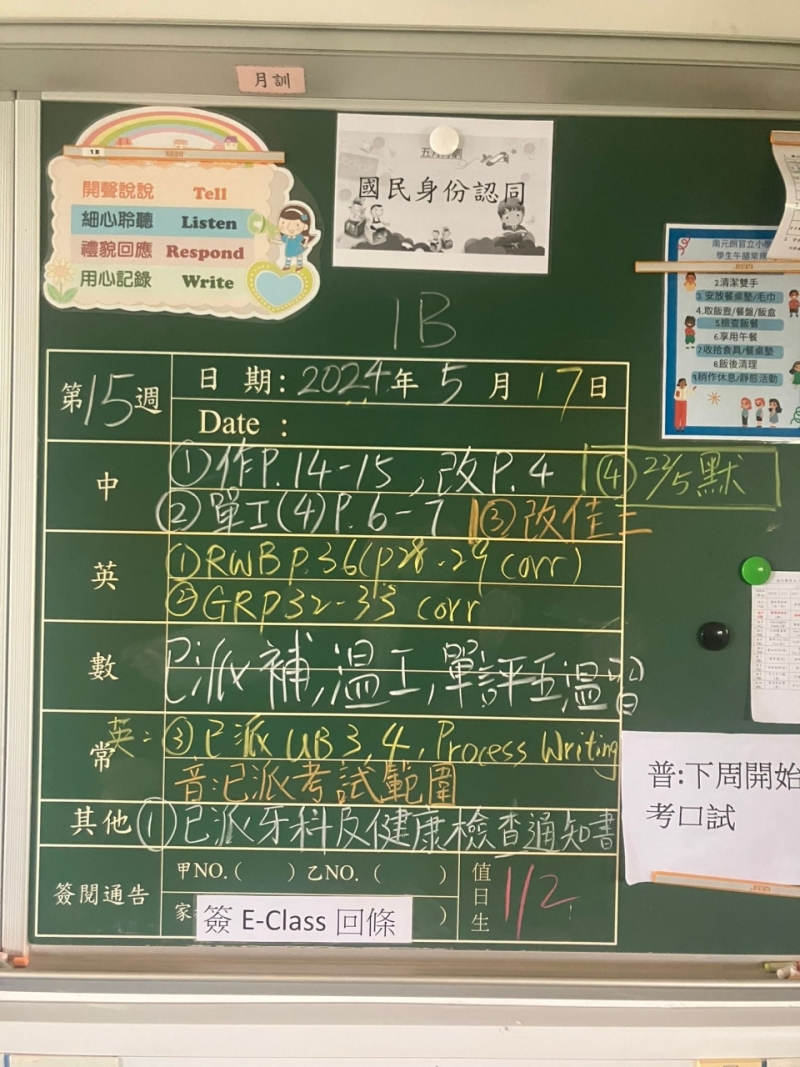 月訓
1B
開聲說說 Tell
細心聆聽 Listen
禮貌回應 Respond
用心記錄 Write
五月月訓
國民身份認同
南元朗官立小學
學生午膳常規
2.清潔雙手
3.安放餐桌墊/毛巾
4.取飯壺/餐盤/飯盒
5.檢查飯餐
6.享用午餐
7.收拾食具/餐桌墊
8.飯後清理
9.稍作休息/靜態活動
1B
第15週
日期: 2024年5月17日
Date :
中
①作P.14-15,改P.4
④22/5默
②單工(4)P.6-7
③改佳三
英
①RWB P.36(p28-29 corr)
②GRP32-33 corr
數
已派補,溫工,單評五溫習
常
英: ③已派UB3,4, Process Writing
音:已派考試範圍
其他
①已派牙科及健康檢查通知書
簽閱通告
甲NO.( ) 乙NO. ( )
家 簽 E-Class 回條 )
值日生
1/2
普:下周開始
考口試